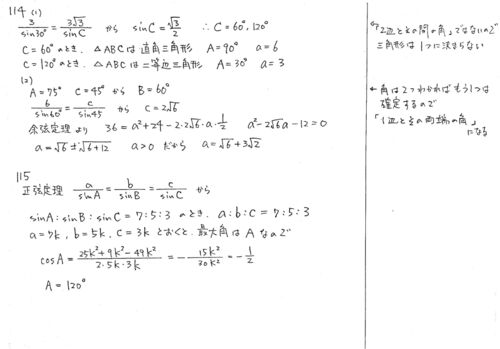 114 (1)
3/sin30° = 3√3/sinC から sinC = √3/2 ∴ C = 60°, 120°
C = 60° のとき、△ABCは直角三角形 A = 90° a = 6
C = 120° のとき、△ABCは二等辺三角形 A = 30° a = 3
(2)
A = 75° C = 45° から B = 60°
6/sin60° = c/sin45 から c = 2√6
余弦定理より 36 = a² + 24 - 2·2√6·a·1/2 a² - 2√6a - 12 = 0
a = √6 ± √6+12 a > 0 だから a = √6 + 3√2
115
正弦定理 a/sinA = b/sinB = c/sinC から
sinA : sinB : sinC = 7 : 5 : 3 のとき、a : b : c = 7 : 5 : 3
a = 7k, b = 5k, c = 3k とおくと、最大角は A なので
cosA = 25k² + 9k² - 49k²/2·5k·3k = - 15k²/30k² = - 1/2
A = 120°
「2辺とその間の角」ではないので
三角形は1つに決まらない
← 角は2つわかればもう1つは
確定するので
「1辺とその両端の角」
になる